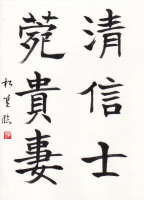 清信士
菀貴妻